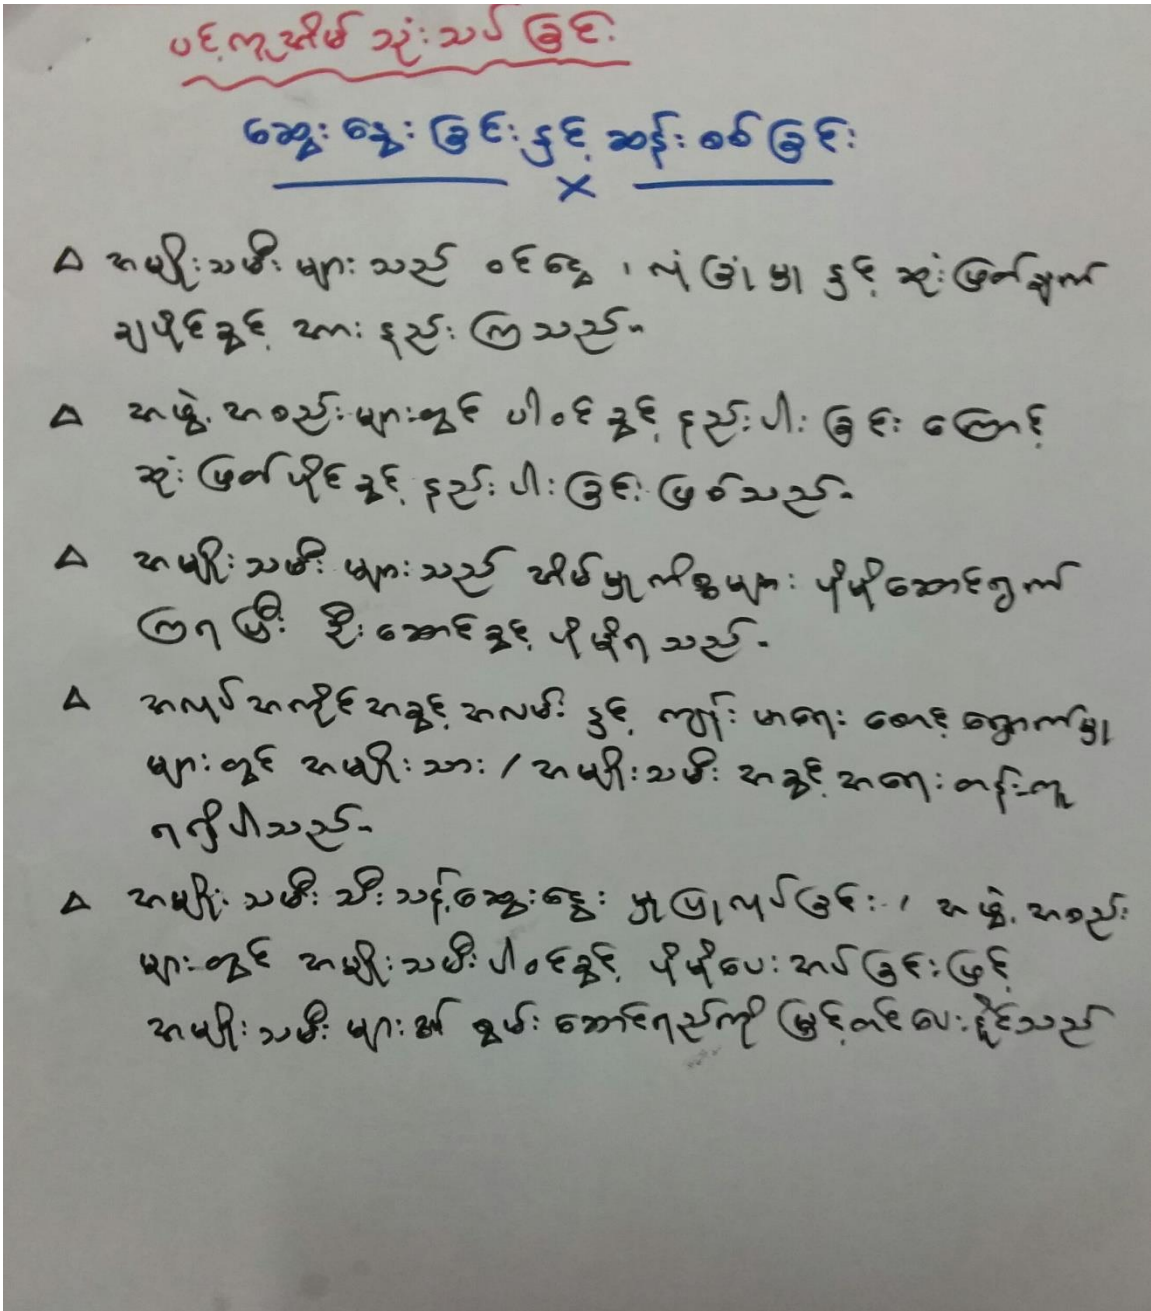 ပင့်ကူအိမ် သုံးသပ်ခြင်း
ဆွေးနွေးခြင်းနှင့် ဆန်းစစ်ခြင်း
အမျိုးသမီးများသည် ဝင်ငွေ၊ လုံခြုံမှု နှင့် ဆုံးဖြတ်ချက်
ချပိုင်ခွင့် အားနည်းကြသည်။
အဖွဲ့အစည်းများတွင် ပါဝင်ခွင့် နည်းပါးခြင်းကြောင့်
ဆုံးဖြတ်ပိုင်ခွင့် နည်းပါးခြင်းဖြစ်သည်။
အမျိုးသမီးများသည် အိမ်မှုကိစ္စများ ပိုမိုဆောင်ရွက်
ကြရပြီး ဦးဆောင်ခွင့် ပိုမိုရသည်။
အလုပ်အကိုင်အခွင့်အလမ်း နှင့် ကျန်းမာရေး စောင့်ရှောက်မှု
များတွင် အမျိုးသား / အမျိုးသမီး အခွင့်အရေးတန်းတူ
ရရှိပါသည်။
အမျိုးသမီး သီးသန့်ဆွေးနွေးမှုပြုလုပ်ခြင်း၊ အဖွဲ့အစည်း
များတွင် အမျိုးသမီးပါဝင်ခွင့် ပိုမိုပေးအပ်ခြင်းဖြင့်
အမျိုးသမီးများ၏ စွမ်းဆောင်ရည်ကို မြှင့်တင်ပေးနိုင်သည်